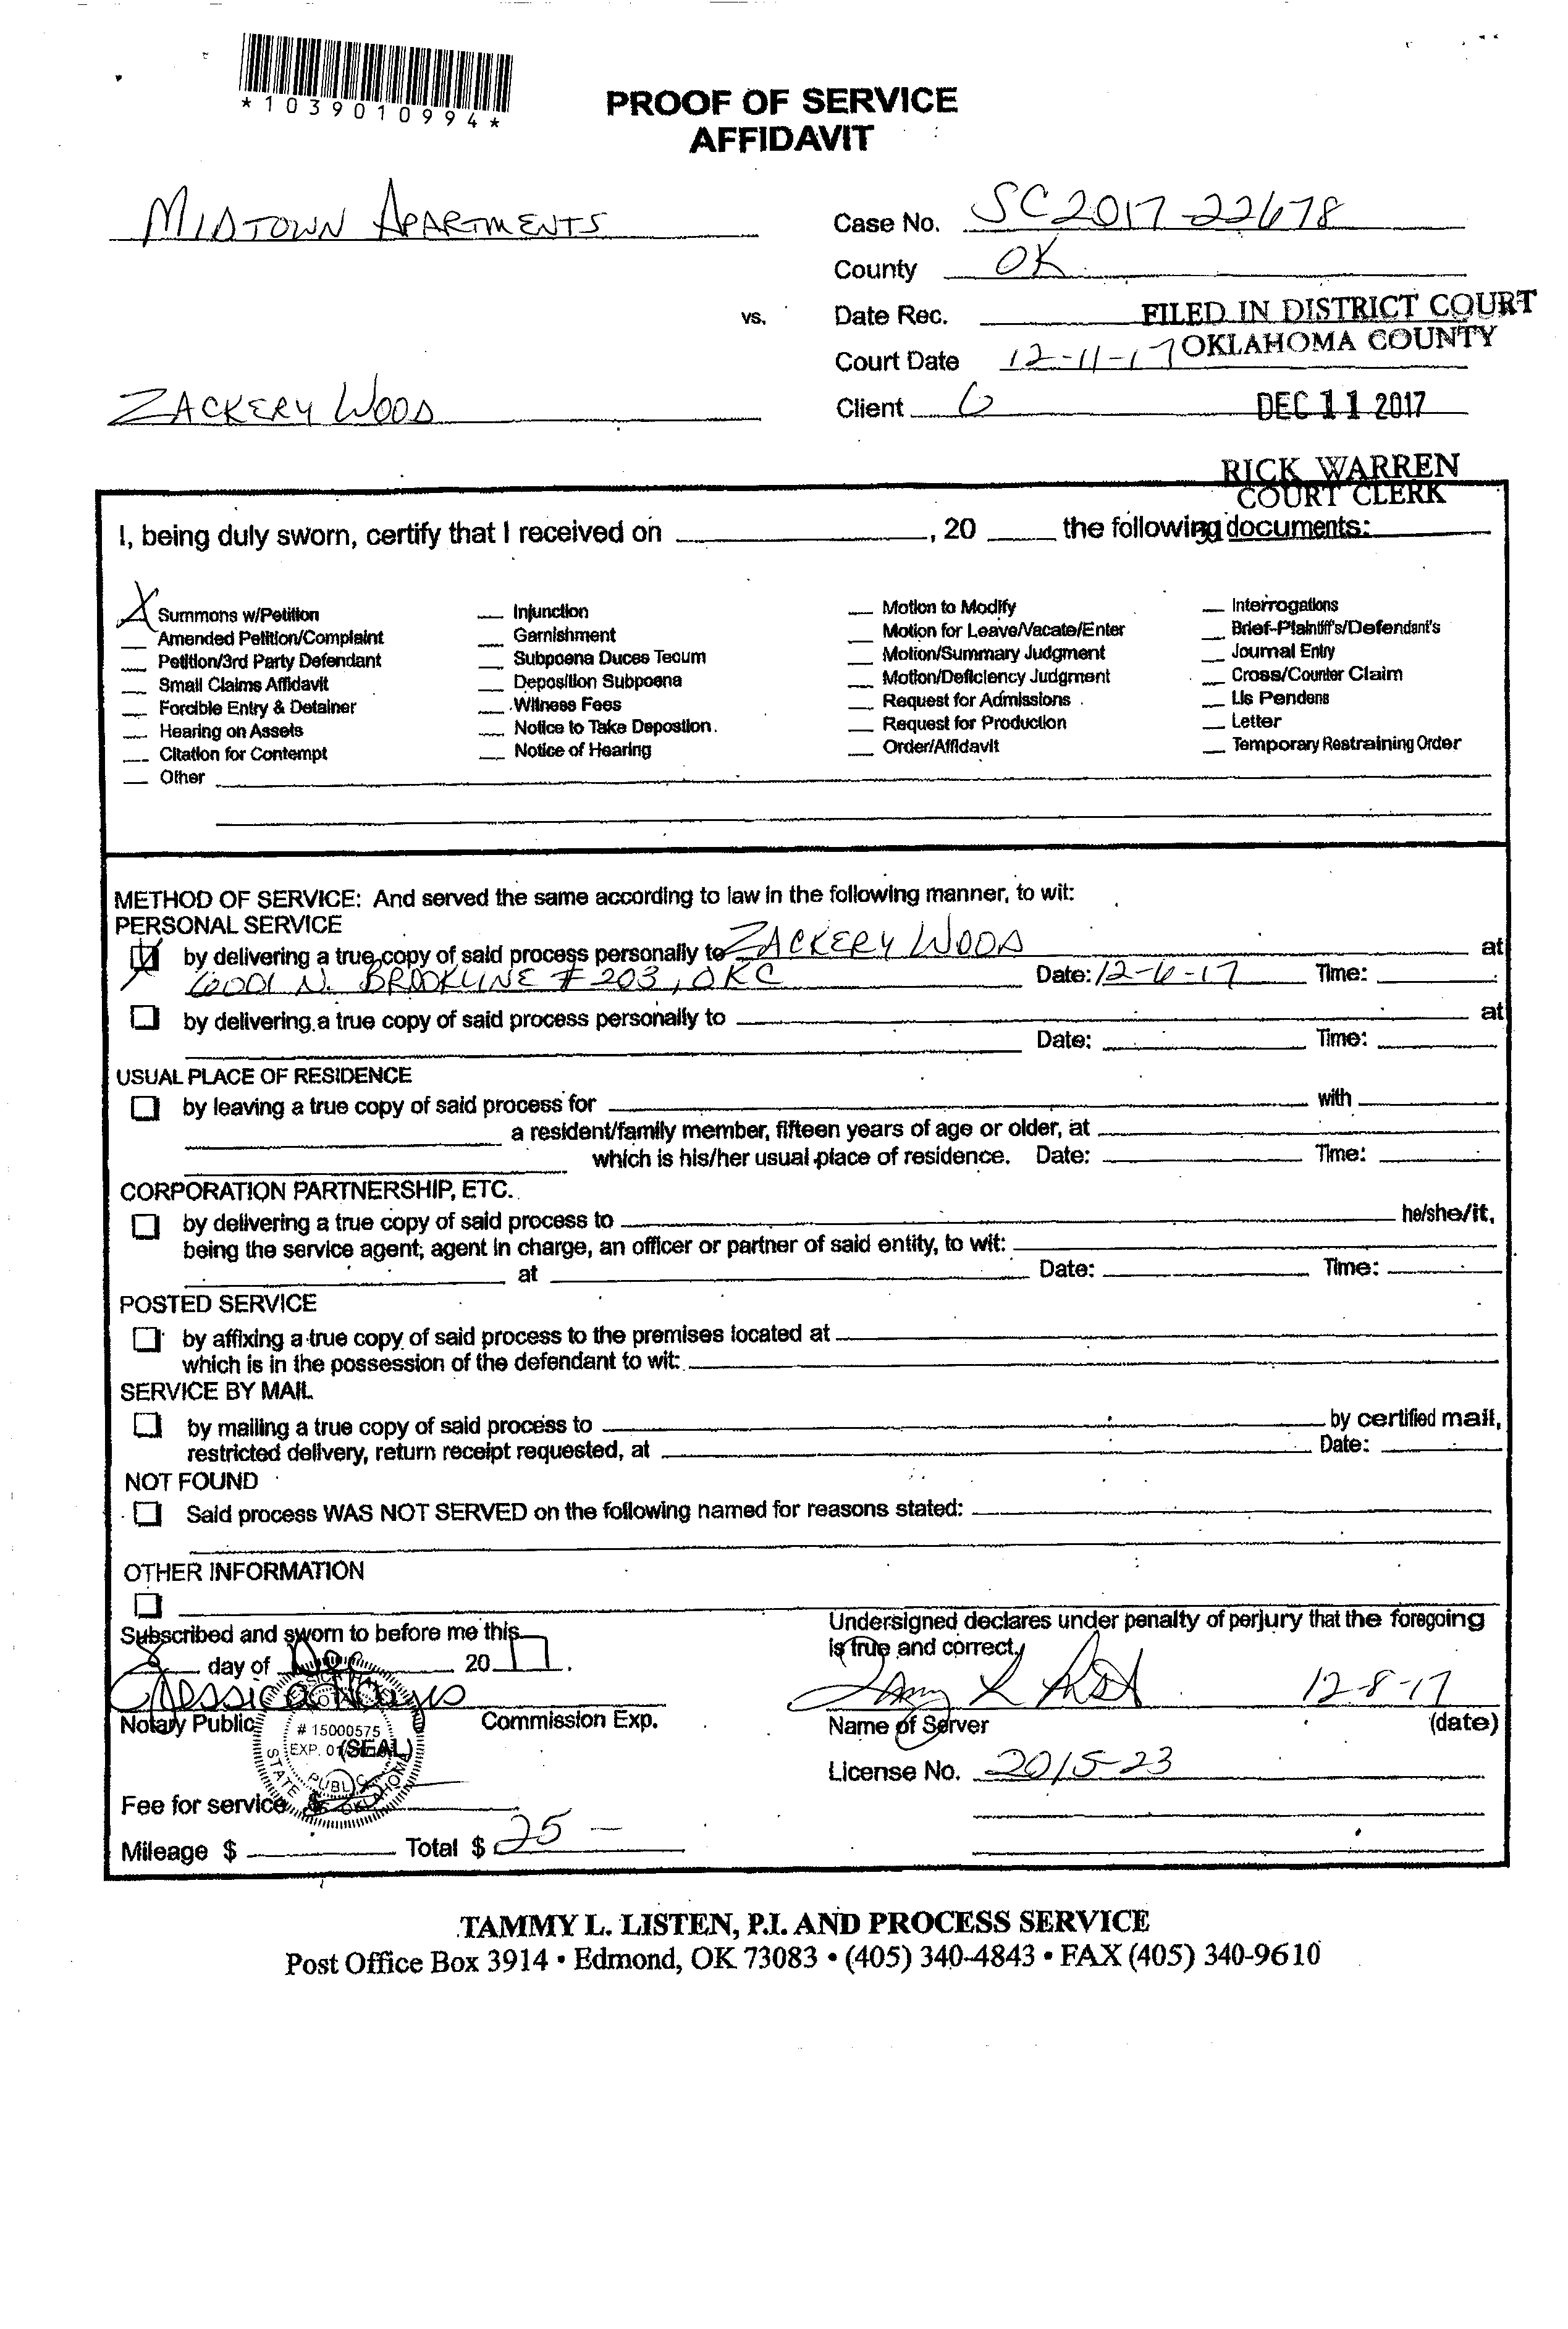 *1039010994*
PROOF OF SERVICE
AFFIDAVIT
MIDTOWN APARTMENTS
Case No. SC2017-22678
County OK
vs.
Date Rec.
FILED IN DISTRICT COURT
OKLAHOMA COUNTY
Court Date 12-11-17
ZACKERY WOOD
Client
DEC 11 2017
RICK WARREN
COURT CLERK
I, being duly sworn, certify that I received on ____, 20 ____ the following documents:
X Summons w/Petition
Amended Petition/Complaint
Petition/3rd Party Defendant
Small Claims Affidavit
Forcible Entry & Detainer
Hearing on Assets
Citation for Contempt
Other
Injunction
Garnishment
Subpoena Duces Tecum
Deposition Subpoena
Witness Fees
Notice to Take Deposition.
Notice of Hearing
Motion to Modify
Motion for Leave/Vacate/Enter
Motion/Summary Judgment
Motion/Deficiency Judgment
Request for Admissions
Request for Production
Order/Affidavit
Interrogations
Brief-Plaintiff's/Defendant's
Journal Entry
Cross/Counter Claim
Lis Pendens
Letter
Temporary Restraining Order
METHOD OF SERVICE: And served the same according to law in the following manner, to wit:
PERSONAL SERVICE
by delivering a true copy of said process personally to ZACKERY WOOD at
6001 N. BROOKLINE # 203, OKC Date: 12-6-17 Time:
by delivering a true copy of said process personally to ____ at
Date: ____ Time:
USUAL PLACE OF RESIDENCE
by leaving a true copy of said process for ____ with
a resident/family member, fifteen years of age or older, at
which is his/her usual place of residence. Date: ____ Time:
CORPORATION PARTNERSHIP, ETC.
by delivering a true copy of said process to ____ he/she/it,
being the service agent, agent in charge, an officer or partner of said entity, to wit:
at ____ Date: ____ Time:
POSTED SERVICE
by affixing a true copy of said process to the premises located at
which is in the possession of the defendant to wit:
SERVICE BY MAIL
by mailing a true copy of said process to ____ by certified mail,
restricted delivery, return receipt requested, at ____ Date:
NOT FOUND
Said process WAS NOT SERVED on the following named for reasons stated:
OTHER INFORMATION
Subscribed and sworn to before me this
8 day of Dec 20 17.
Jessica Hays
Notary Public
Commission Exp.
# 15000575
EXP. 01
(SEAL)
PUBLIC
STATE OF OKLAHOMA
Fee for service $
Mileage $ ____ Total $ 25 —
Undersigned declares under penalty of perjury that the foregoing
is true and correct.
12-8-17
Name of Server (date)
License No. 2015-23
TAMMY L. LISTEN, P.I. AND PROCESS SERVICE
Post Office Box 3914 • Edmond, OK 73083 • (405) 340-4843 • FAX (405) 340-9610